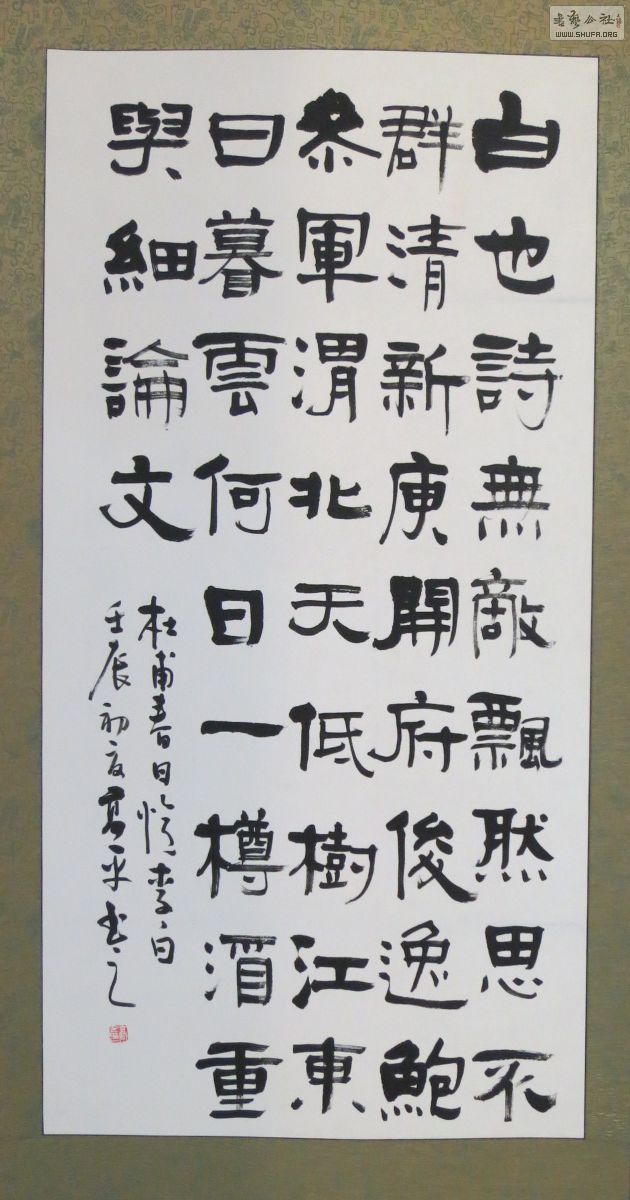 白也詩無敵飄然思不
群清新庾開府俊逸鮑
參軍渭北天低樹江東
日暮雲何日一樽酒重
與細論文
杜甫春日憶李白
壬辰初夏高平书之
書藝公社
WWW.SHUFA.ORG